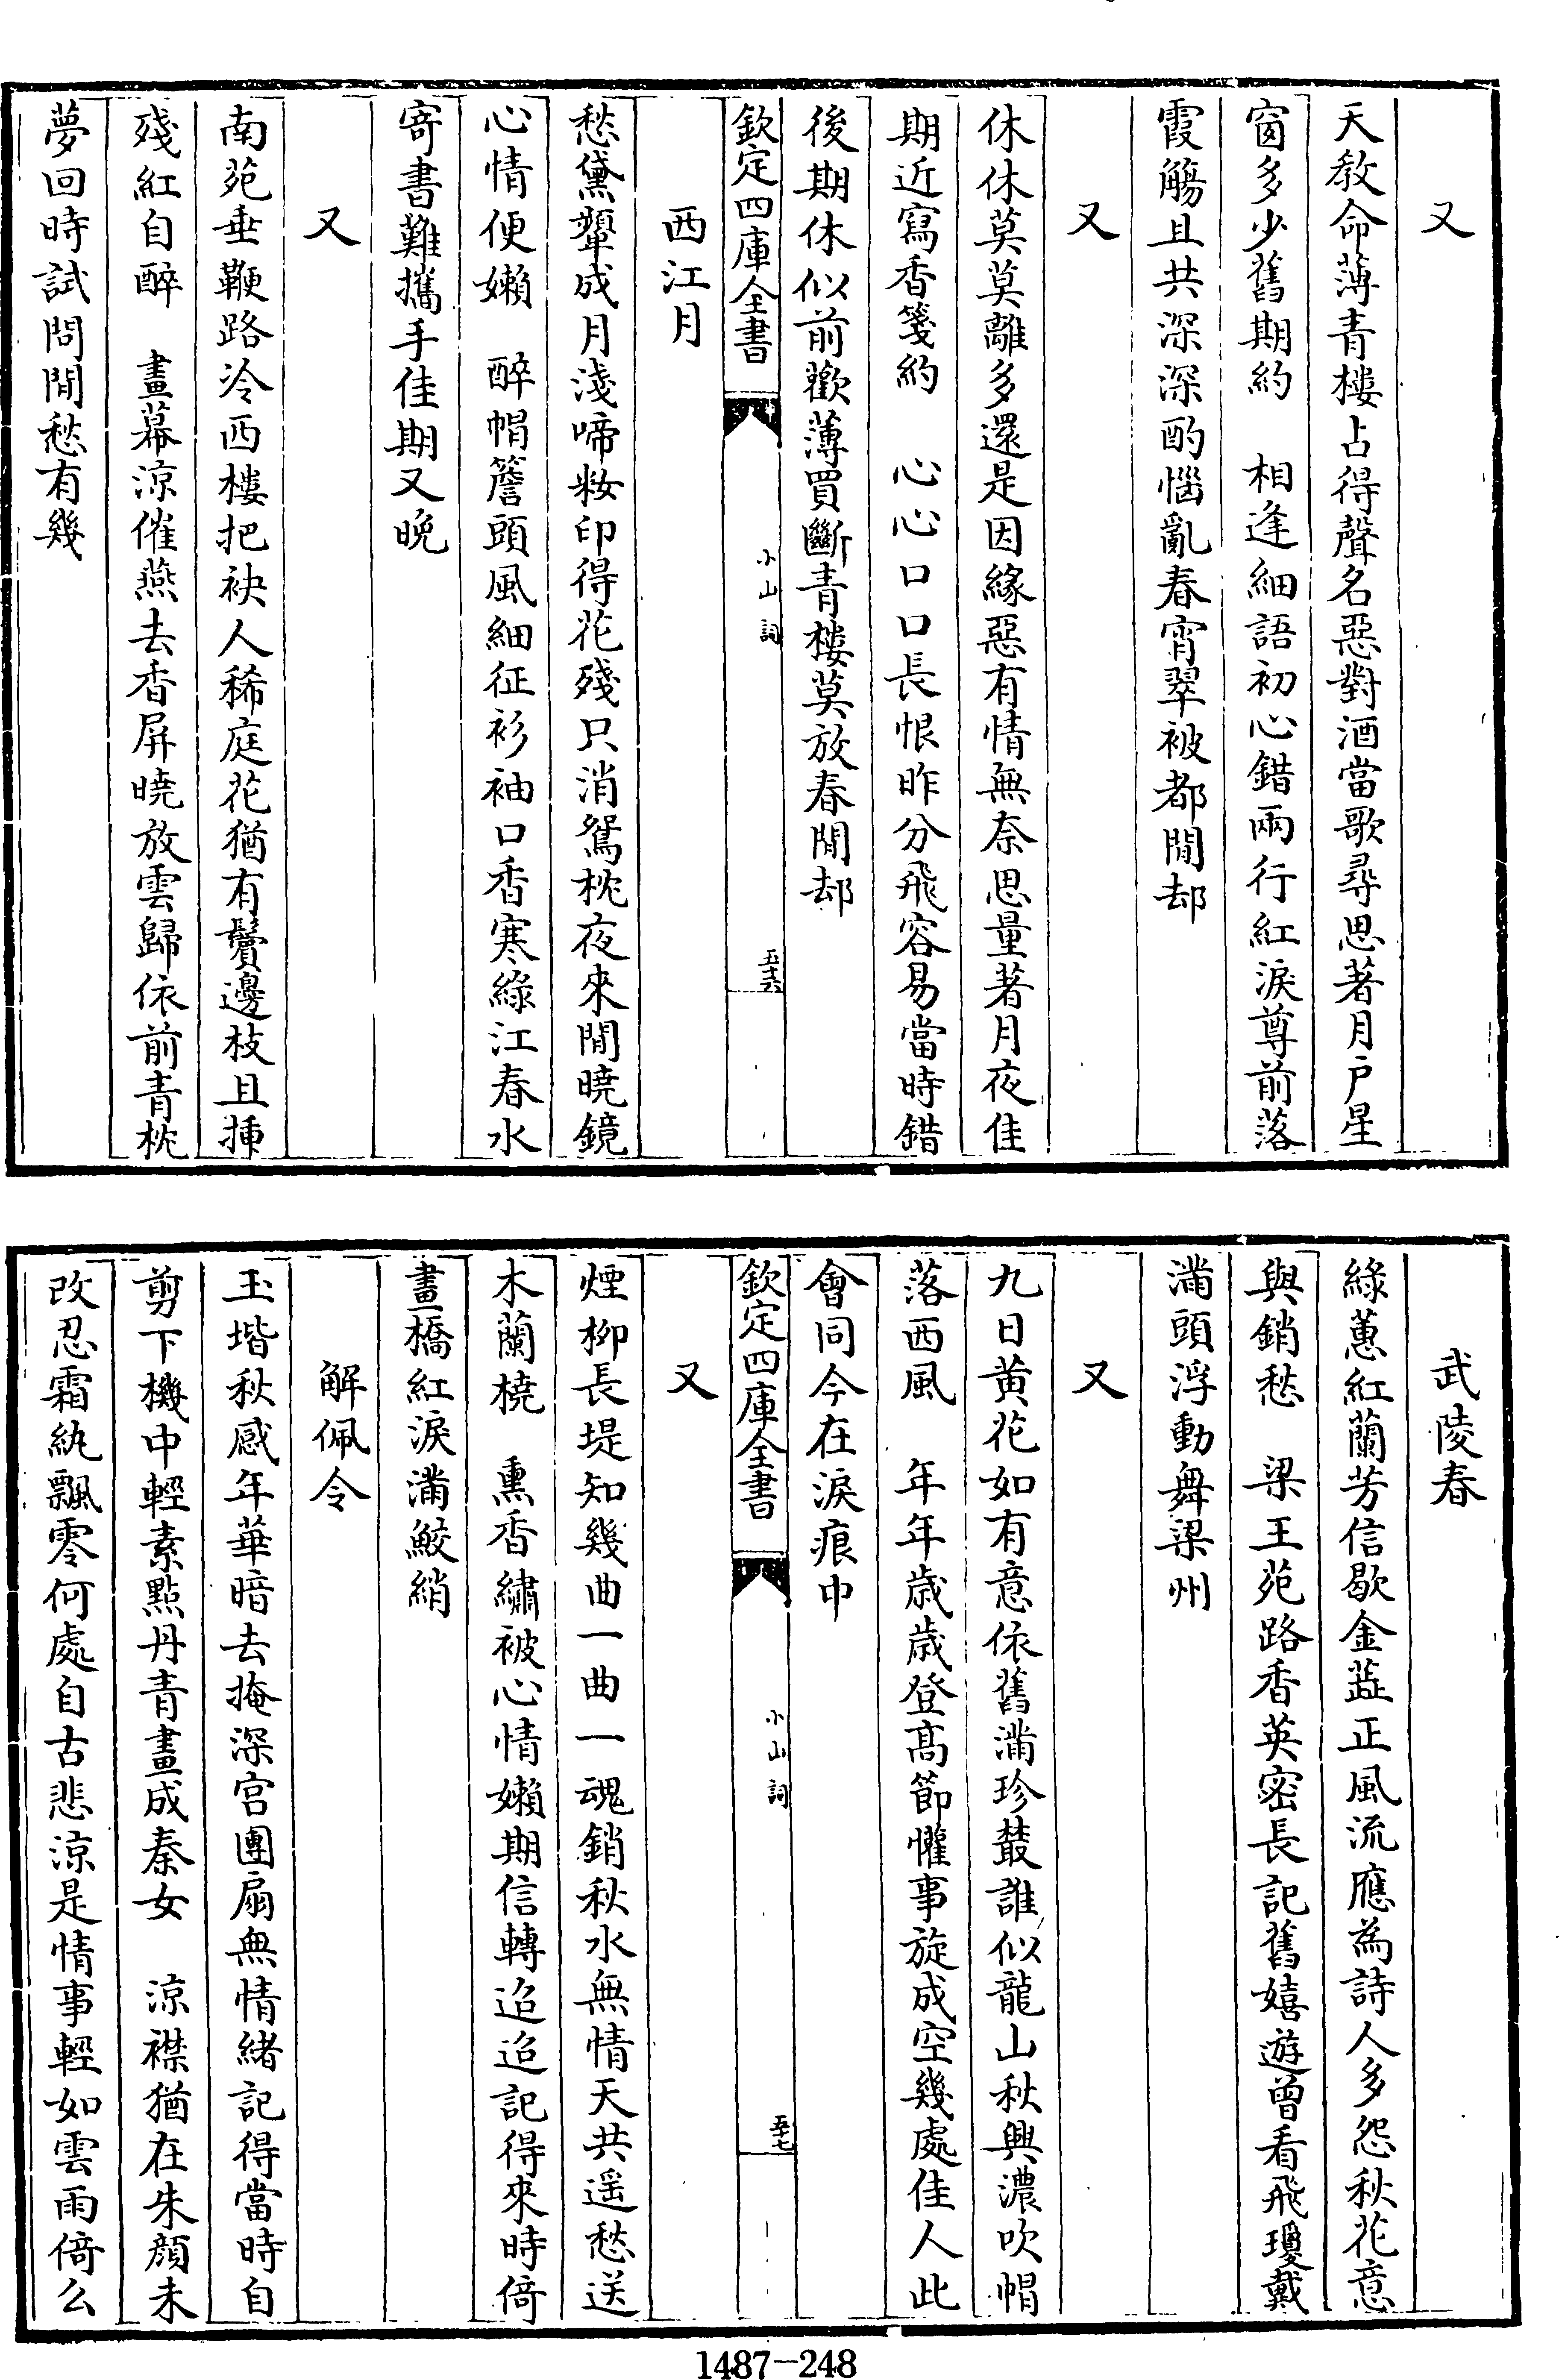 又
天教命薄青樓占得聲名惡對酒當歌尋思著月戶星
窗多少舊期約　相逢細語初心錯兩行紅淚尊前落
霞觴且共深深酌惱亂春宵翠被都閒却
又
休休莫莫離多還是因緣惡有情無奈思量著月夜佳
期近寫香箋約　心心口口長恨昨分飛容易當時錯
後期休似前歡薄買斷青樓莫放春閒却
欽定四庫全書
小山詞
五十六
西江月
愁黛顰成月淺啼妝印得花殘只消鴛枕夜來閒曉鏡
心情便嬾　醉帽簷頭風細征衫袖口香寒綠江春水
寄書難攜手佳期又晚
又
南苑垂鞭路冷西樓把袂人稀庭花猶有鬢邊枝且插
殘紅自醉　畫幕涼催燕去香屏曉放雲歸依前青枕
夢回時試問閒愁有幾
武陵春
綠蕙紅蘭芳信歇金蘂正風流應為詩人多怨秋花意
與銷愁　梁王苑路香英密長記舊嬉遊曾看飛瓊戴
滿頭浮動舞梁州
又
九日黃花如有意依舊滿珍叢誰似龍山秋興濃吹帽
落西風　年年歲歲登高節懽事旋成空幾處佳人此
會同今在淚痕中
欽定四庫全書
小山詞
五十七
又
煙柳長堤知幾曲一曲一魂銷秋水無情天共遥愁送
木蘭橈　熏香繡被心情嬾期信轉迢迢記得來時倚
畫橋紅淚滿鮫綃
解佩令
玉堦秋感年華暗去掩深宮團扇無情緒記得當時自
剪下機中輕素點丹青畫成秦女　涼襟猶在朱顏未
改忍霜紈飄零何處自古悲涼是情事輕如雲雨倚么
1487—248